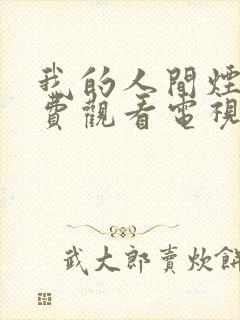 我的人間煙
費觀看電視
武大郎賣炊餅